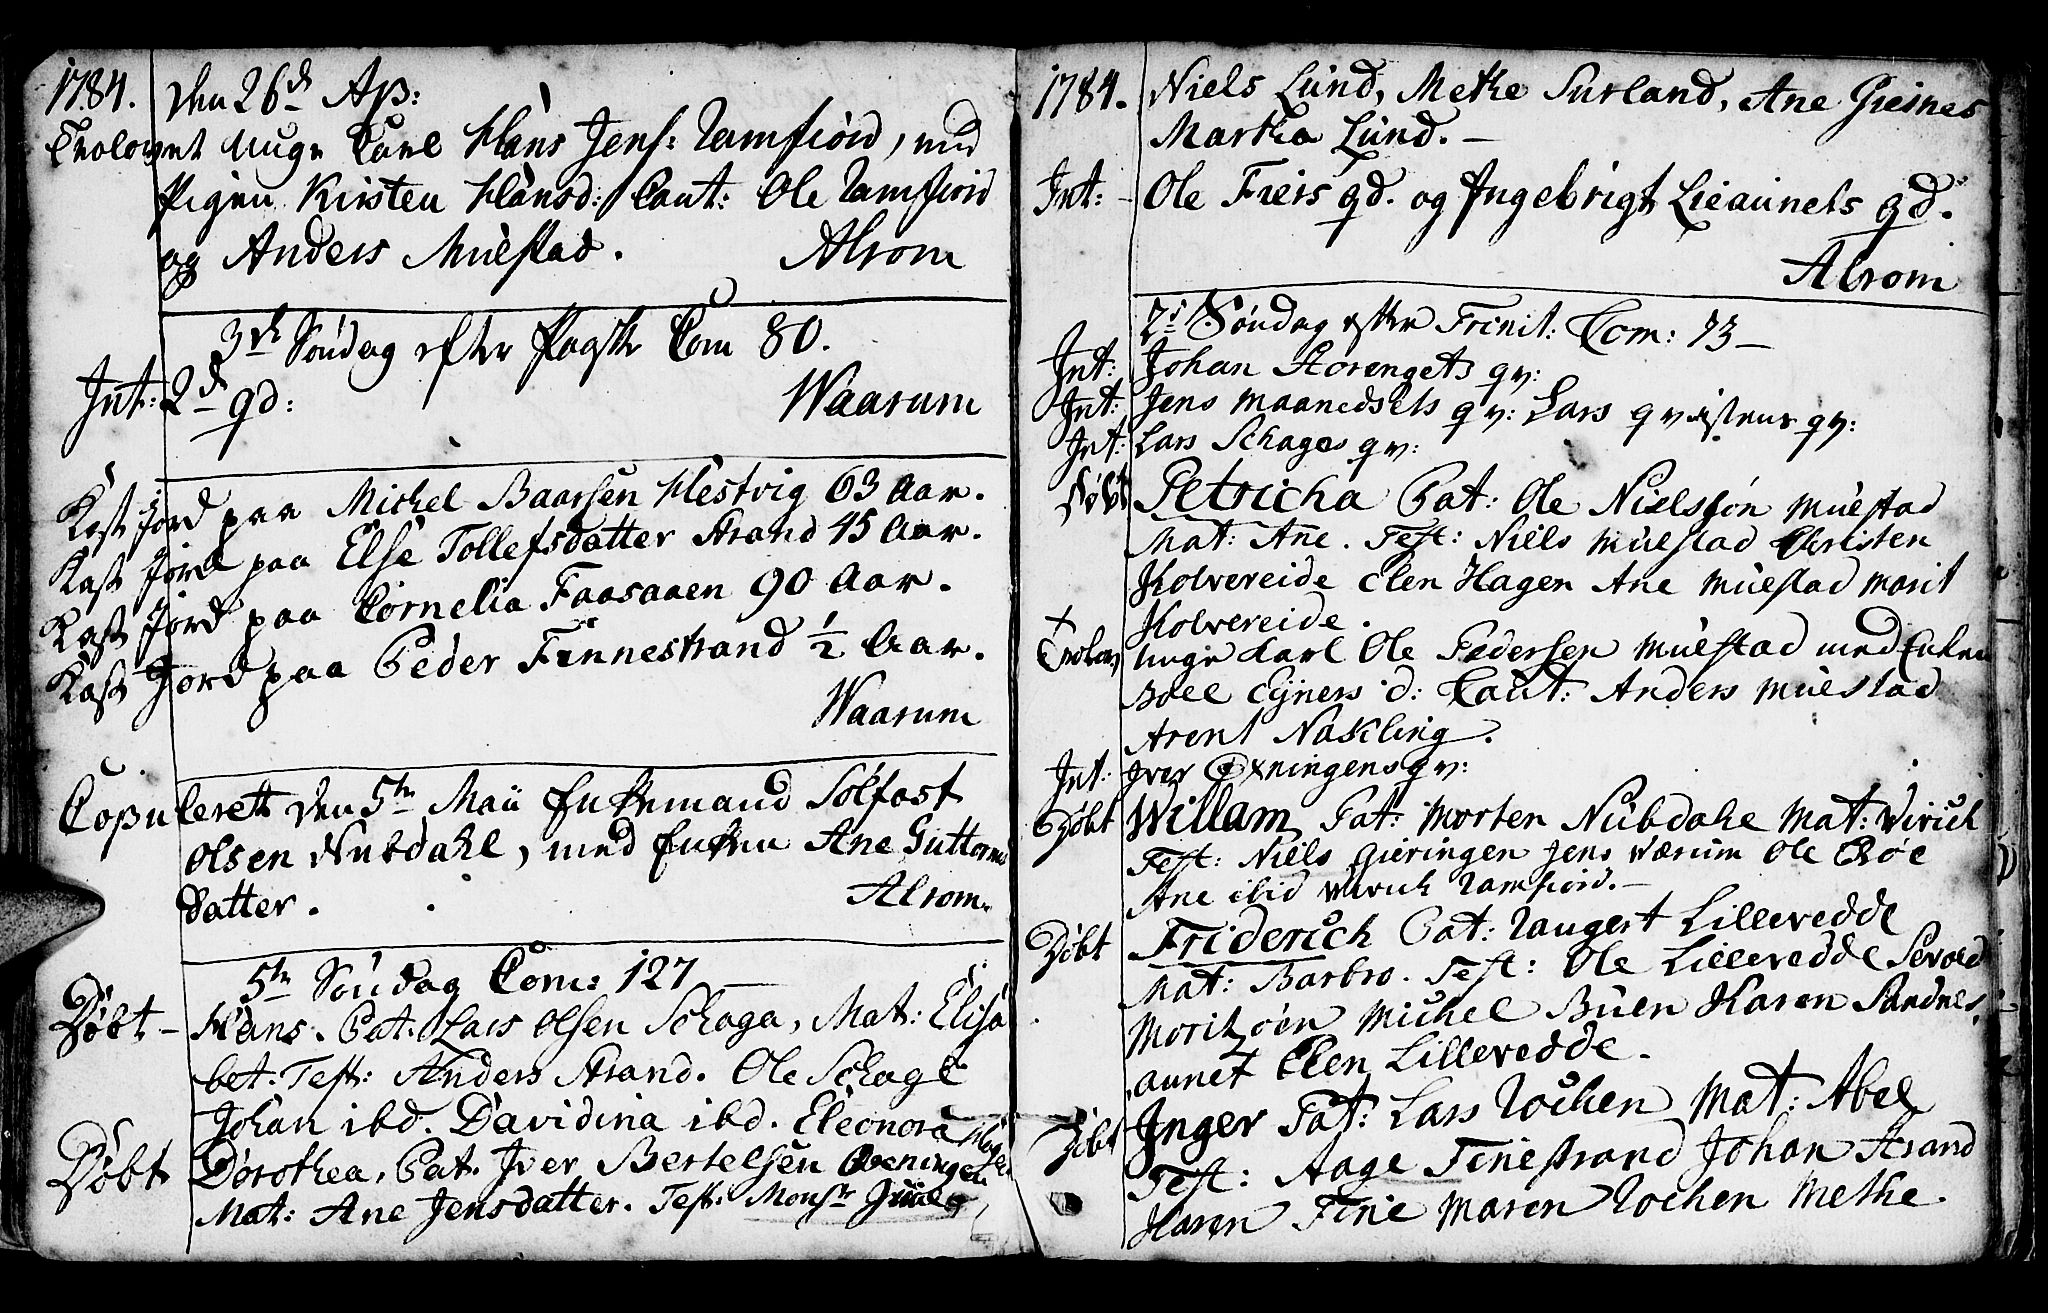 1784. Den 26de Ap:
Trolovet unge Carl Hans Jens: Ramfiörd, med
Pigen Kirsten Hansd: Caut: Ole Ramfiörd
og Anders Muestad. Alrom
3de Söndag efter Paaske Com 80.
Int: 2de qd: Waarum
Kast Jord paa Michel Baarsen Hestvig 63 Aar.
Kast Jord paa Else Tollefsdatter Strand 45 Aar.
Kast Jord paa Cornelia Faasaaen 90 Aar.
Kast Jord paa Peder Finnestrand 1/2 Aar.
Waarum
Copuleret den 5te Maii Enkemand Solfast
Olsen Nubdahl, med Enken Ane Guttorms
datter. Alrom.
5te Söndag Com: 127
Döbt – Hans. Pat: Lars Olsen Schage, Mat: Elisa
bet. Test: Anders Strand. Ole Schage
Johan ibd. Davidina ibd. Eleonora
Döbt Dorothea, Pat. Iver Bertelsen Öeningen
Mat: Ane Jensdatter. Test: Monsr
1784. Niels Lund, Methe Surland, Ane Gieines
Martha Lund. –
Int: – Ole Fiers qd. og Ingebrigt Lieaunets qd.
Alrom
2d Söndag efter Trinit: Com: 73 –
Int: Johan Storengets qv:
Int: Jens Maanedsels qv: Lars qvistens qv:
Int: Lars Schages qv:
Döbt Petricha Pat: Ole Nielssön Muestad
Mat: Ane. Test: Niels Muestad Christen
Kolvereide Elen Hagen Ane Muestad Marit
+ Kolvereide.
Trolov unge Karl Ole Pedersen Muestad med Enken
Boel Ejners d: Caut: Anders Muestad
Arent Nakling.
Int: Iver Öxningens qv:
Döbt Willam Pat: Morten Nubdahl Mat: Virich
Test: Niels Gieringen Jens Værum Ole Röe
Ane ibid Virich Ramfiörd. –
Döbt Friderich Pat: Laugert Lilleredde
Mat: Barbro. Test: Ole Lilleredde Sevold
Moritzöen Michel Buen Karen Sandnes
aunet Elen Lilleredde.
Döbt Inger Pat: Lars Rochen Mat: Abel
Test: Aage Finestrand Johan Strand
Karen Fine Maren Rochen Methe